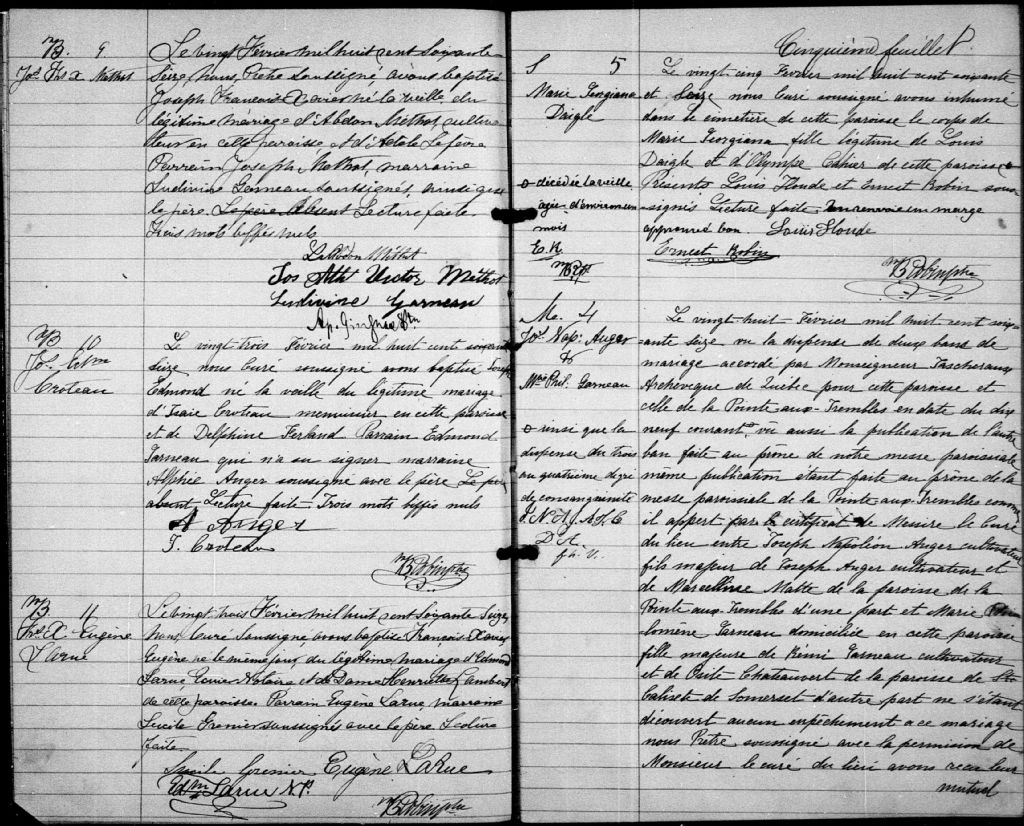 B. 9
Jos. Frs X. Méthot
Le vingt Février mil huit cent soixante
seize, nous, Prêtre soussigné avons baptisé
Joseph François Xavier né la veille du
légitime mariage d'Abdon Méthot cultiva
teur en cette paroisse et d'Adèle Lefèvre
Parrain Joseph Méthot, marraine
Ludivine Garneau soussignés ainsi que
le père. Le père absent Lecture faite.
Trois mots biffés nuls
Abdon Méthot
Jos Victor Méthot
Ludivine Garneau
B 10
Jos. Edm
Croteau
Le vingt trois Février mil huit cent soixante
seize nous Curé soussigné avons baptisé Joseph
Edmond né la veille du légitime mariage
d'Isaie Croteau menuisier en cette paroisse
et de Delphine Ferland Parrain Edmond
Garneau qui n'a su signer marraine
Alphée Anger soussigné avec le père Le père
absent Lecture faite - Trois mots biffés nuls
A Anger
I. Croteau
B 11
Frs X. Eugène
Larue
Le vingt trois Février mil huit cent soixante seize
nous Curé soussigné avons baptisé François Xavier
Eugène né le même jour du légitime mariage d'Edmond
Larue Ecuier Notaire et de Dame Henriette Lambert
de cette paroisse. Parrain Eugène Larue marraine
Lucile Grenier soussignés avec le père Lecture
faite.
Lucile Grenier Eugène LaRue
Edm Larue N.P.
Cinquième feuillet
S 5
Marie Georgiana
Daigle
o décédée la veille
agée d'environ un
mois
E. R.
Le vingt cinq Février mil huit cent soixante
et seize nous Curé soussigné avons inhumé
dans le cimetière de cette paroisse le corps de
Marie Georgiana fille légitime de Louis
Daigle et d'Olympe Cahier de cette paroisse o
Présents Louis Houde et Ernest Robin sous-
signés Lecture faite. Un renvoie en marge
approuvé bon. Louis Houde
Ernest Robin
M. 4
Jos. Nap. Anger
&
Mie Phil. Garneau
o ainsi que la
dispense du trois
au quatrième degré
de consanguinité
Le vingt-huit Février mil huit cent soix-
ante seize vu la dispense de deux bans de
mariage accordé par Monseigneur Taschereau
Archevêque de Québec pour cette paroisse et
celle de la Pointe-aux-Trembles en date du dix
neuf courant o, vu aussi la publication de l'autre
ban faite au prône de notre messe paroissiale
même publication étant faite au prône de la
messe paroissiale de la Pointe aux-Trembles comme
il appert par le certificat de Messire le Curé
du lieu entre Joseph Napoléon Anger cultivateur
fils majeur de Joseph Anger cultivateur et
de Marcelline Matte de la paroisse de la
Pointe aux-Trembles d'une part et Marie Phi
lomène Garneau domiciliée en cette paroisse
fille majeure de Rémi Garneau cultivateur
et de Chatauvert de la paroisse de St
Calixte de Somerset d'autre part ne s'étant
découvert aucun empêchement a ce mariage
nous Prêtre soussigné avec la permision de
Monsieur le curé du lieu avons recu leur
mutuel